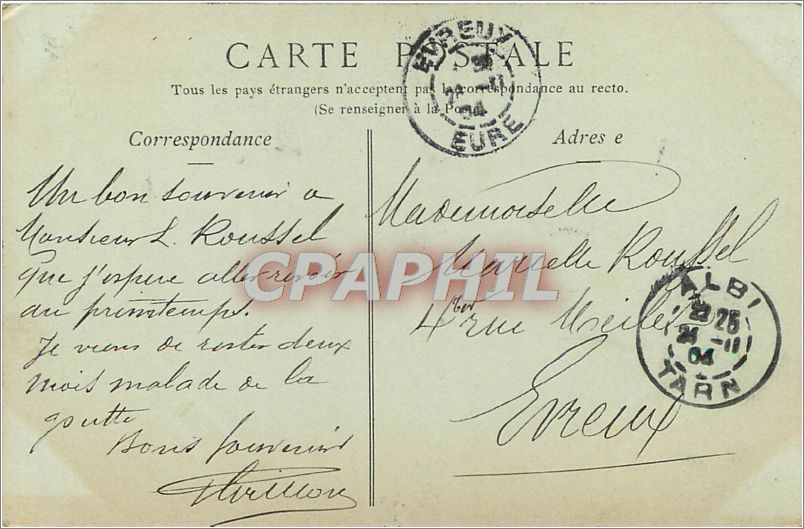 CARTE POSTALE
Tous les pays étrangers n'acceptent pas la correspondance au recto.
(Se renseigner à la Poste)
EVREUX
EURE
04
Correspondance
Adres e
Un bon souvenir a
Monsieur L. Roussel
que j'espere aller revoir
au printemps.
Je viens de rester deux
mois malade de la
goutte
Bons souvenirs
Mademoiselle
Marcelle Roussel
4 ter rue
Evreux
ALBI
22 25
24 -11
04
TARN
CPAPHIL